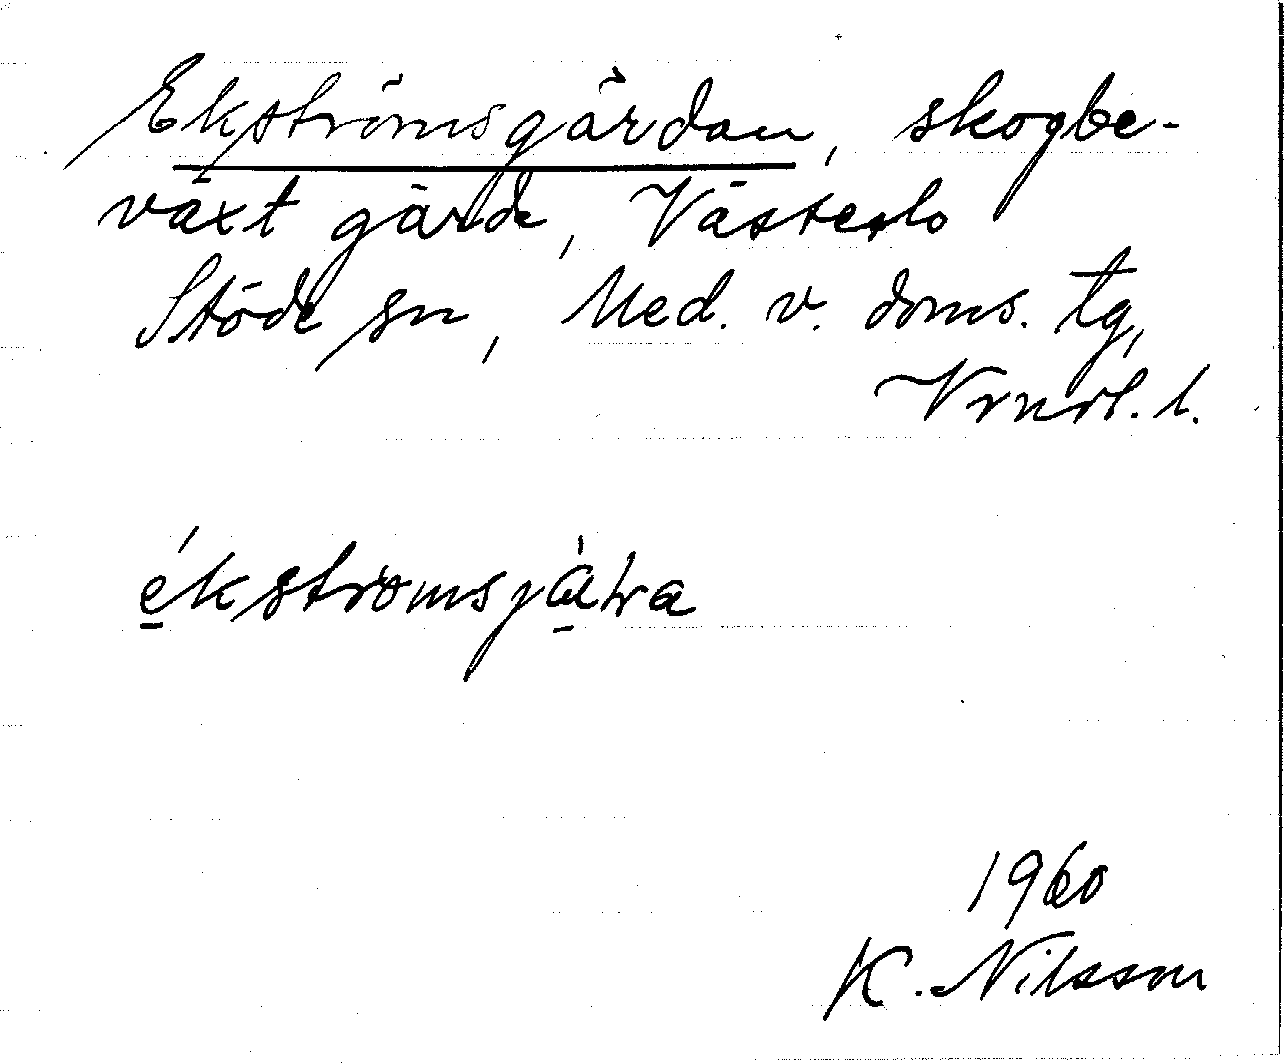 Ekströmsgärdan, skogbe-
växt gärde, Västerlo
Stöde sn, Med. v. doms. tg,
Vrnrl. l.
ékstromsjàɫra
1960
K. Nilsson